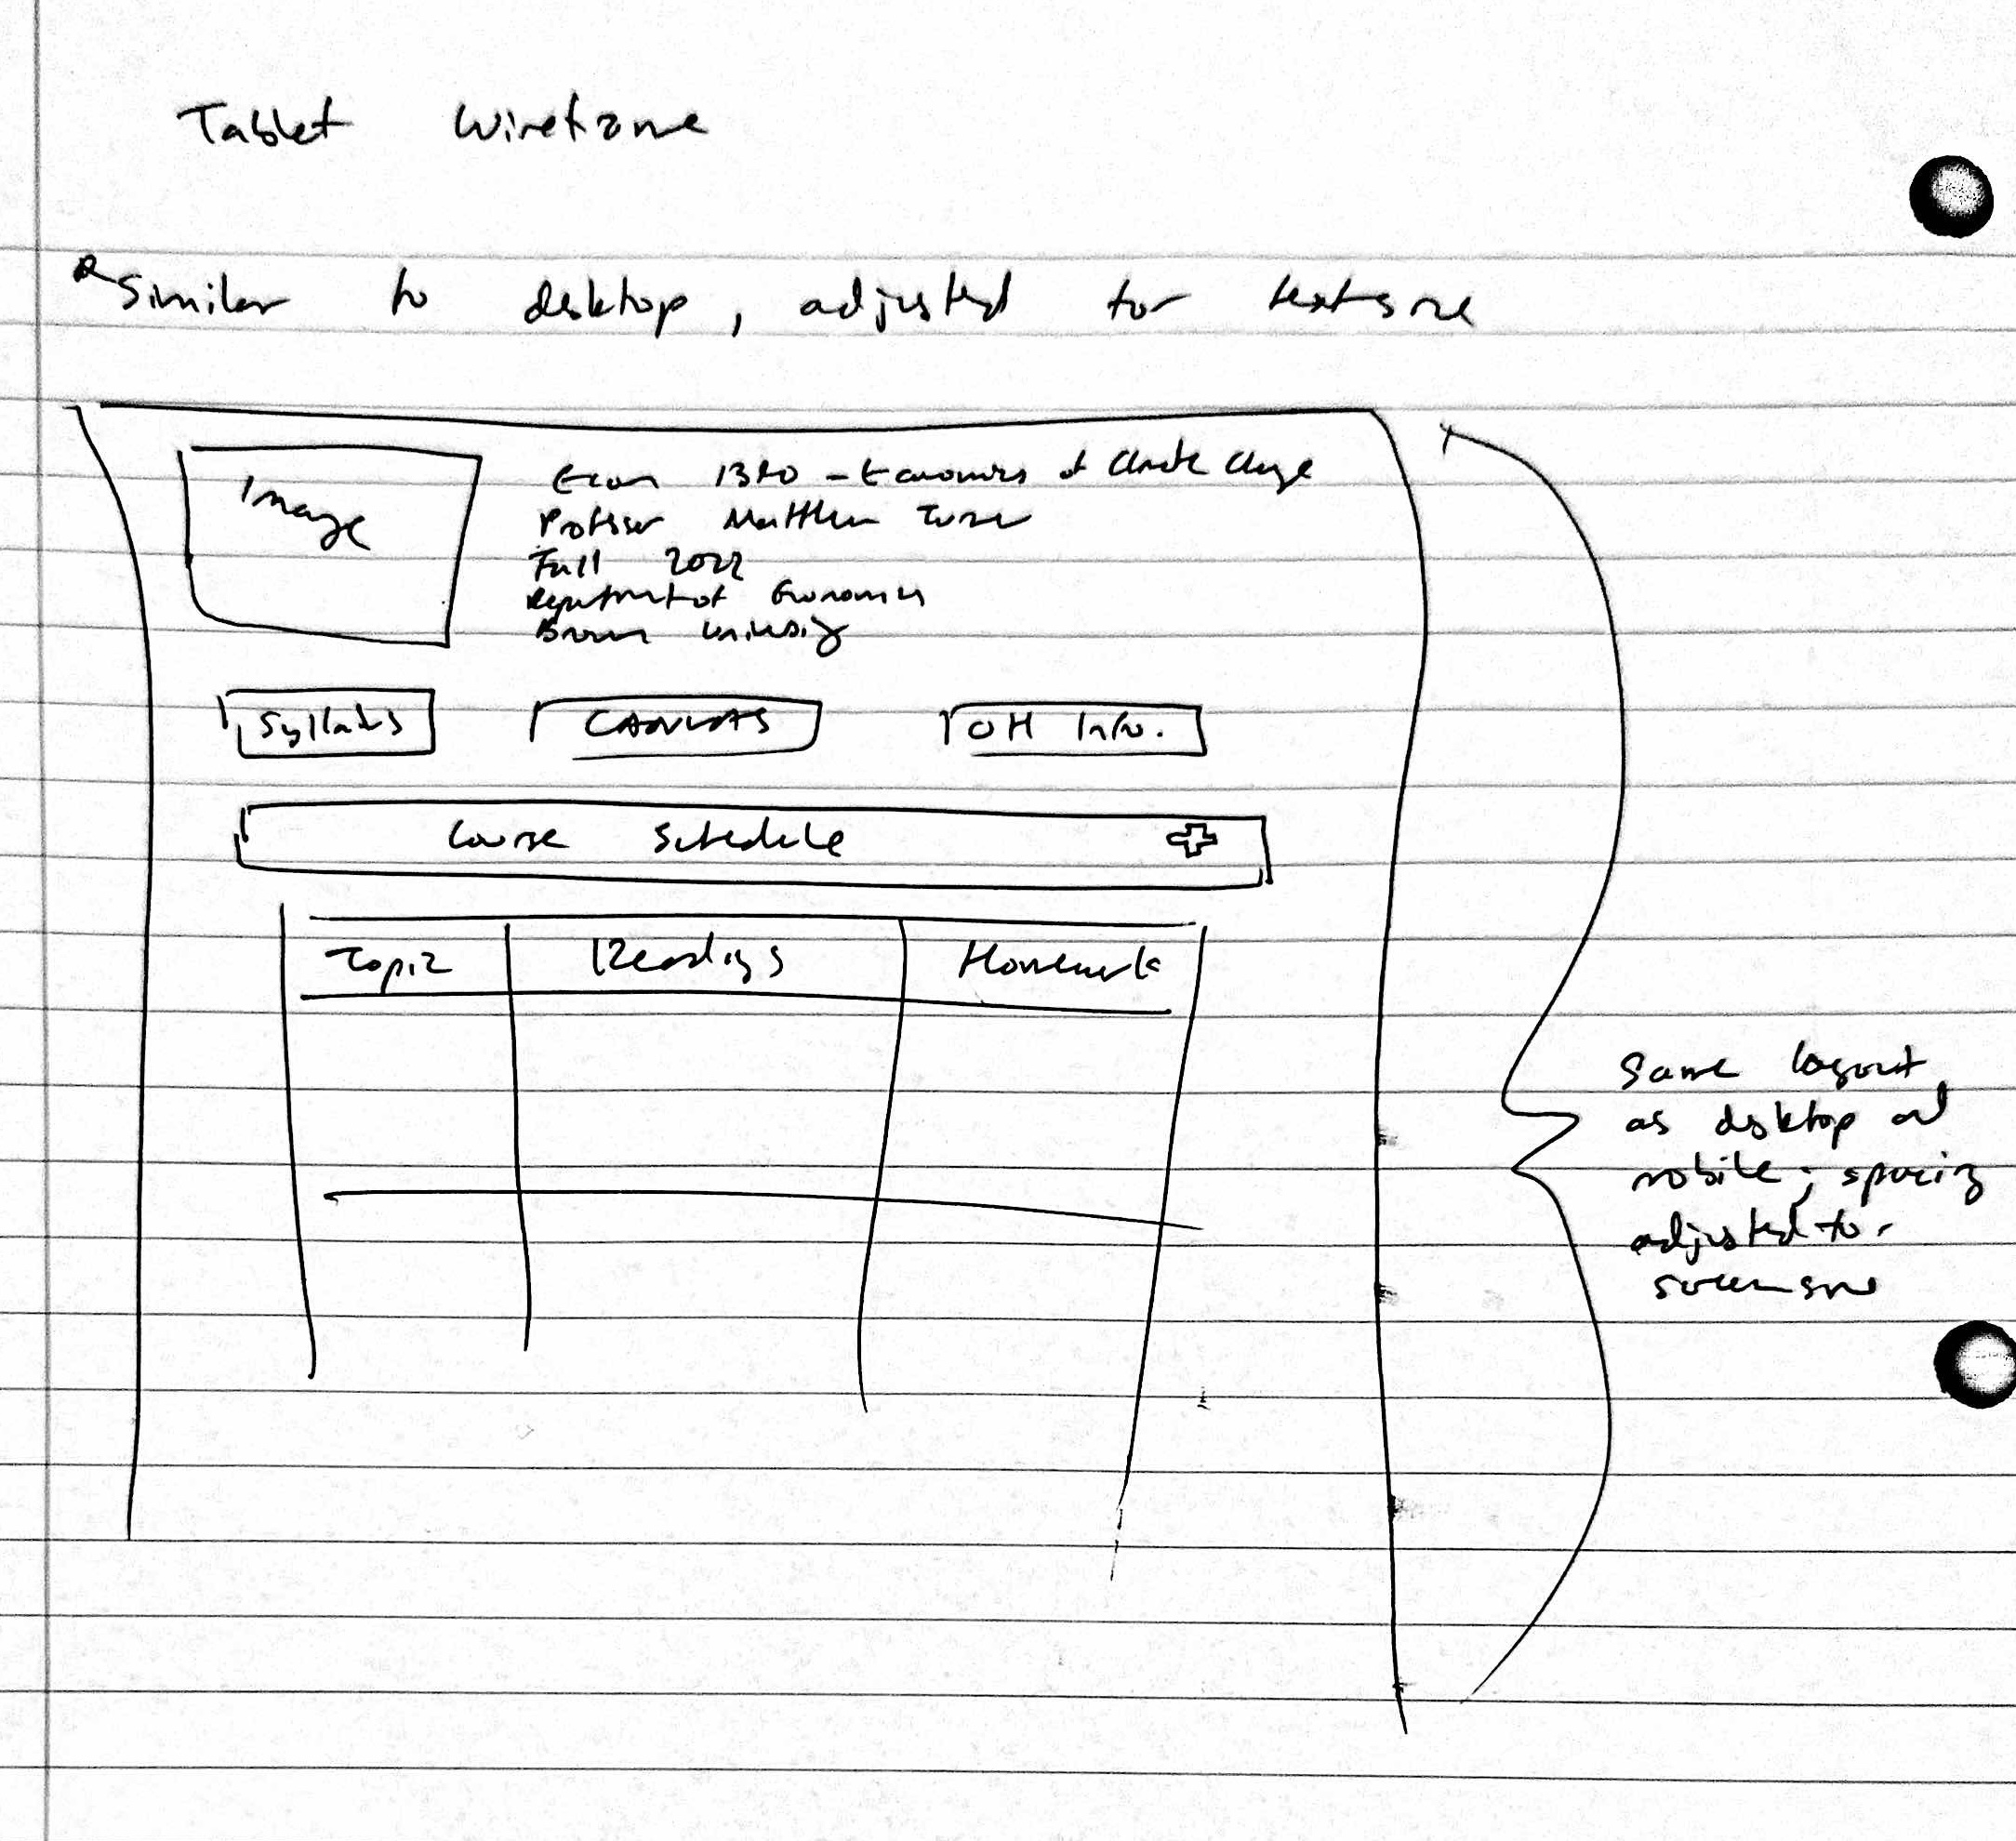 Tablet Wireframe
*Similar to desktop, adjusted for text size
Image
Econ 1380 - Economics of Climate Change
Professor Matthew Turner
Fall 2022
Department of Economics
Brown University
Syllabus
CANVAS
OH Info.
Course Schedule
Topic
Readings
Homework
Same layout
as desktop and
mobile; spacing
adjusted for
screen size